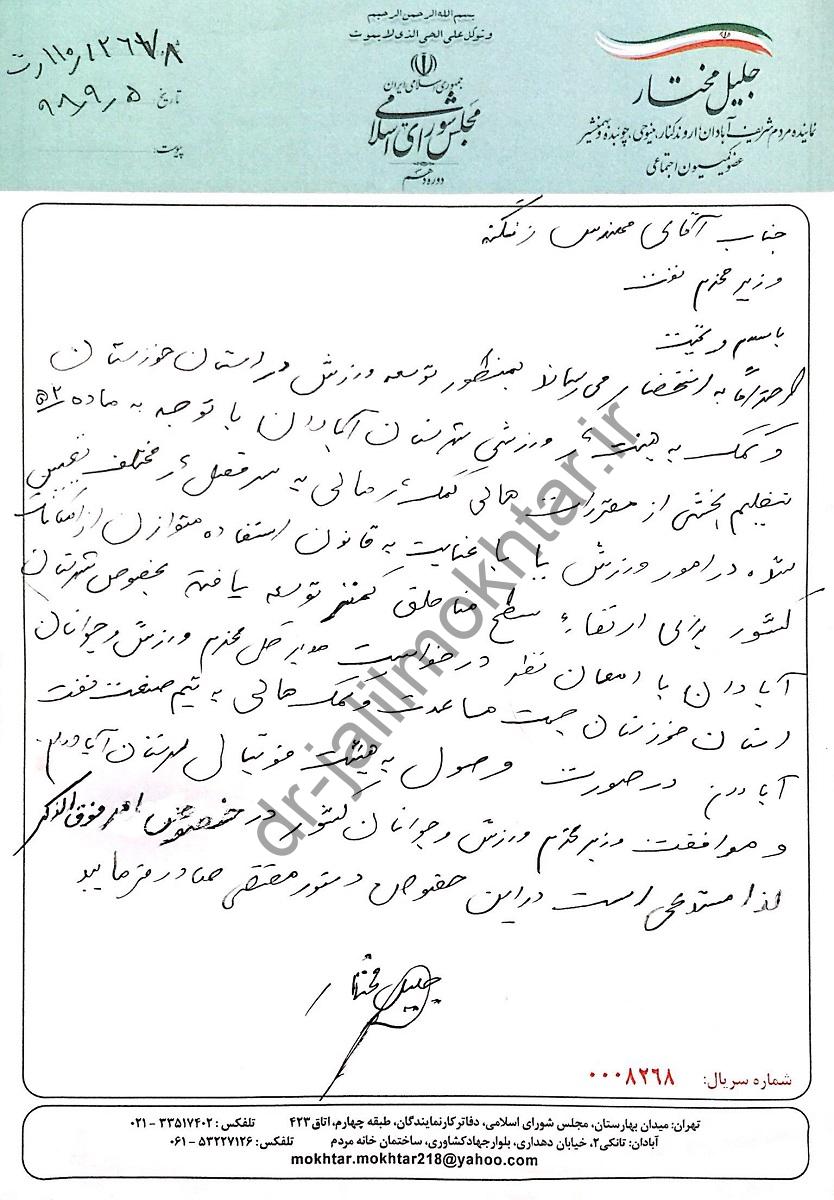 بسم الله الرحمن الرحیم
و توکل علی الحی الذی لا یموت
جمهوری اسلامی ایران
مجلس شورای اسلامی
دوره دهم
جلیل مختار
نماینده مردم شریف آبادان، اروندکنار، مینوحی، چوئبده و بهمنشیر
عضو کمیسیون اجتماعی
تاریخ: ۹۸/۹/۵
پیوست:
جناب آقای مهندس زنگنه
وزیر محترم نفت
با سلام و تحیت
احتراماً به استحضار می رساند بمنظور توسعه ورزش در استان خوزستان
و کمک به هیئت ورزشی شهرستان آبادان با توجه به ماده
تنظیم بخشی از مقررات مالی کمک مالی به سرفصل مختلف تعیین
شده در امور ورزش با عنایت به قانون استفاده متوازن از امکانات
کشور برای ارتقاء سطح مناطق کمتر توسعه یافته بخصوص شهرستان
آبادان با امعان نظر درخواست مدیر کل محترم ورزش و جوانان
استان خوزستان جهت مساعدت و کمک مالی به تیم صنعت نفت
آبادان در صورت وصول به هیئت فوتبال شهرستان آبادان
و موافقت وزیر محترم ورزش و جوانان کشور در خصوص امر فوق الذکر
لذا مستدعی است در این خصوص دستور مقتضی صادر فرمایید
جلیل مختار
dr-jalilmokhtar.ir
شماره سریال: ۰۰۰۸۲۶۸
تهران: میدان بهارستان، مجلس شورای اسلامی، دفاتر کار نمایندگان، طبقه چهارم، اتاق ۴۲۳ تلفکس: ۳۳۵۱۷۴۰۲ - ۰۲۱
آبادان: تانکی۲، خیابان دهداری، بلوار جهاد کشاورزی، ساختمان خانه مردم تلفکس: ۵۳۲۲۷۱۲۶ - ۰۶۱
mokhtar.mokhtar218@yahoo.com